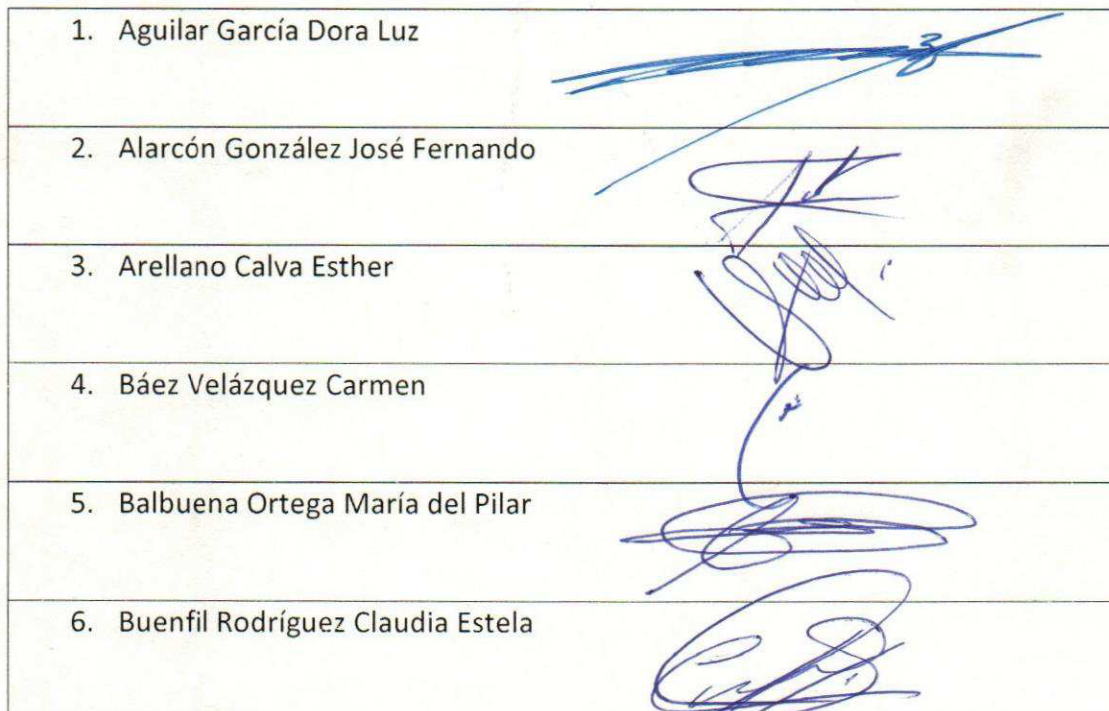 1. Aguilar García Dora Luz
2. Alarcón González José Fernando
3. Arellano Calva Esther
4. Báez Velázquez Carmen
5. Balbuena Ortega María del Pilar
6. Buenfil Rodríguez Claudia Estela